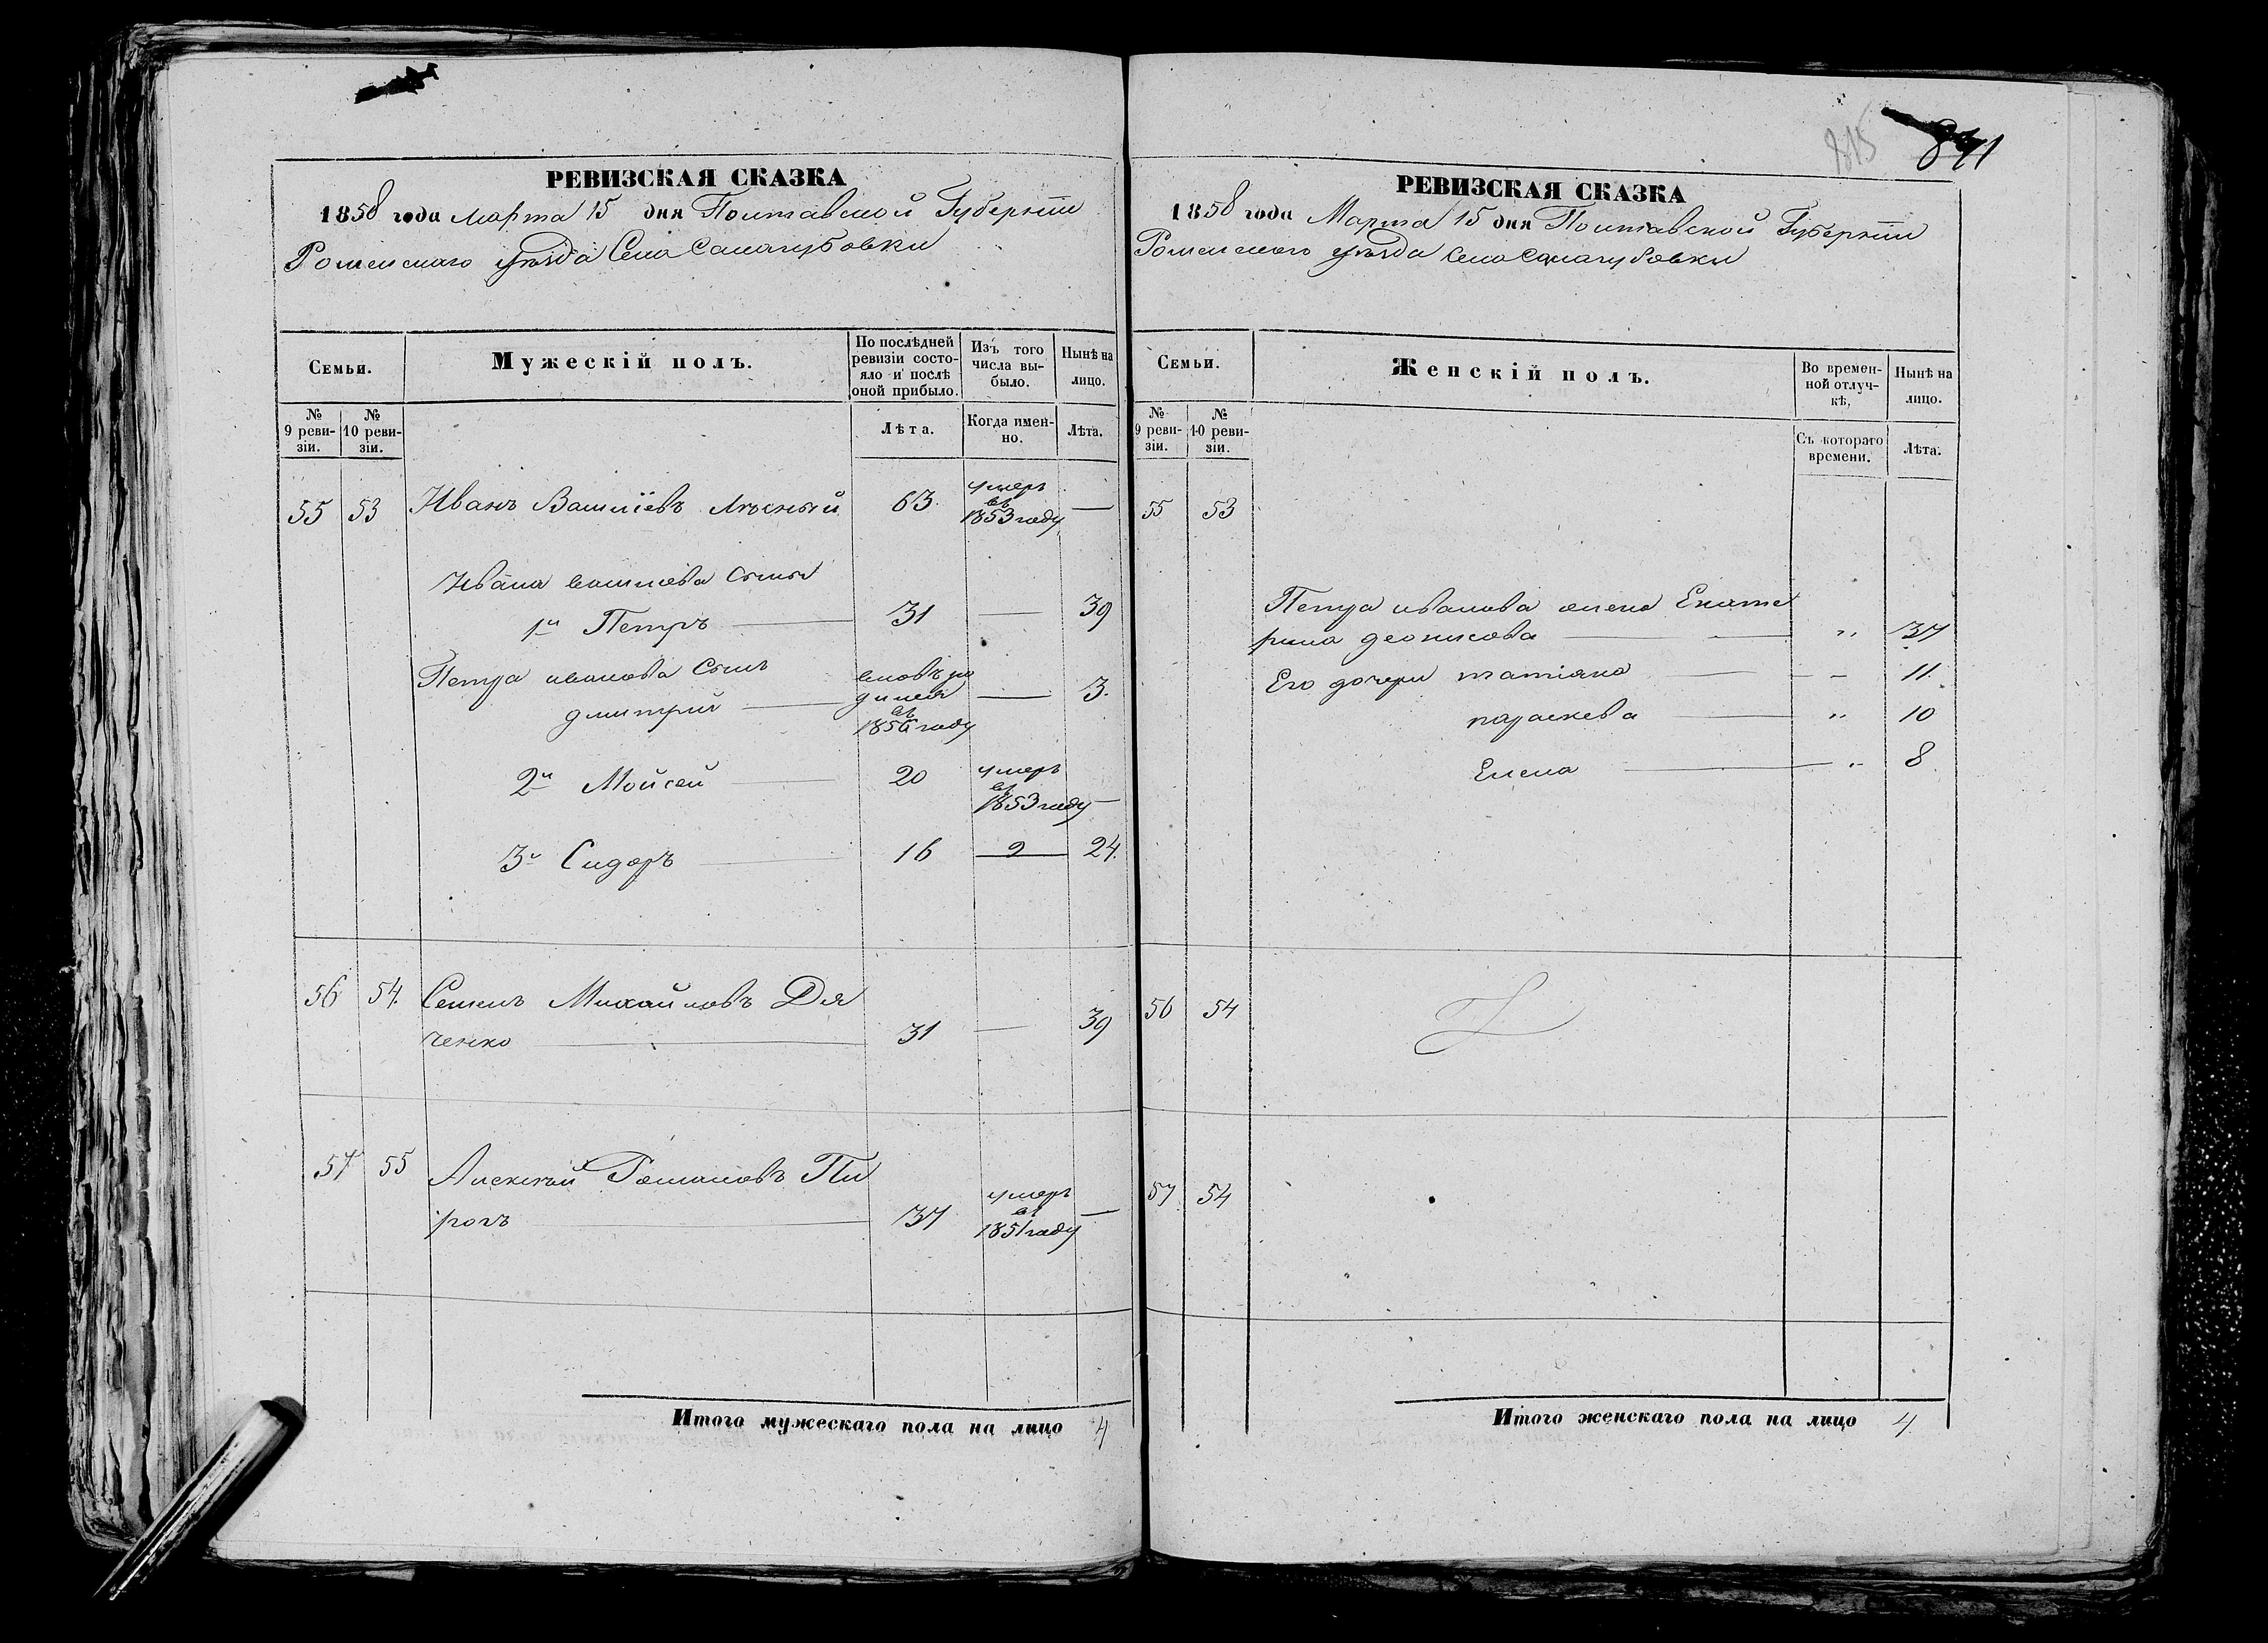 РЕВИЗСКАЯ СКАЗКА
1858 года Марта 15 дня Полтавской Губерніи
Роменскаго уѣзда Села Салогубовки
Семьи.
Мужескій полъ.
По послѣдней ревизіи состояло и послѣ оной прибыло.
Изъ того числа выбыло.
Нынѣ на лицо.
№ 9 ревизіи.
№ 10 ревизіи.
Лѣта.
Когда именно.
Лѣта.
55 53 Иванъ Василіевъ Лѣсный 63 умеръ въ 1853 году —
Ивана василіева Сыны
1й Петръ — 31 — 39
Петра иванова Сынъ
дмитрій — вновь родился въ 1856 году — 3.
2й Мойсей — 20 умеръ въ 1853 году —
3й Сидоръ — 16 — 24.
56 54. Семенъ Михайловъ Дя
ченко — 31 — 39
57 55 Алексѣй Романовъ Пи
рогъ — 37 умеръ въ 1851 году —
Итого мужескаго пола на лицо 4
815
841
РЕВИЗСКАЯ СКАЗКА
1858 года Марта 15 дня Полтавской Губерніи
Роменскаго уѣзда Села Салогубовки
Семьи.
Женскій полъ.
Во временной отлучкѣ,
Нынѣ на лицо.
№ 9 ревизіи.
№ 10 ревизіи.
Съ котораго времени.
Лѣта.
55 53
Петра иванова жена Екате
рина деонисова — „ 37
Его дочери татіяна — — 11.
параскева — „ 10
Елена — „ 8
56 54
57 54
Итого женскаго пола на лицо 4.